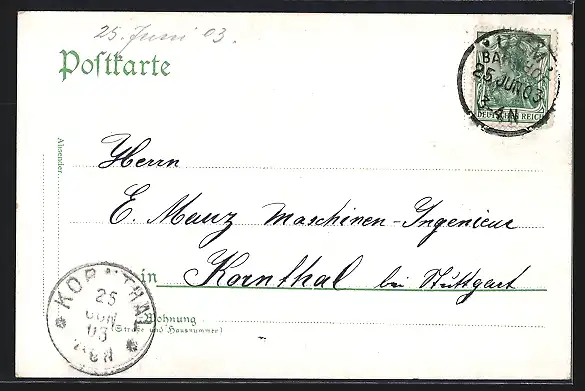 25. Juni 03.
Postkarte
BAHNHOF
25 JUN 03
3-4 N
DEUTSCHES REICH
Absender
Herrn
E. Mauz Maschinen-Ingenieur
in Kornthal bei Stuttgart
Wohnung
(Straße und Hausnummer)
KORNTHAL
25
JUN
03